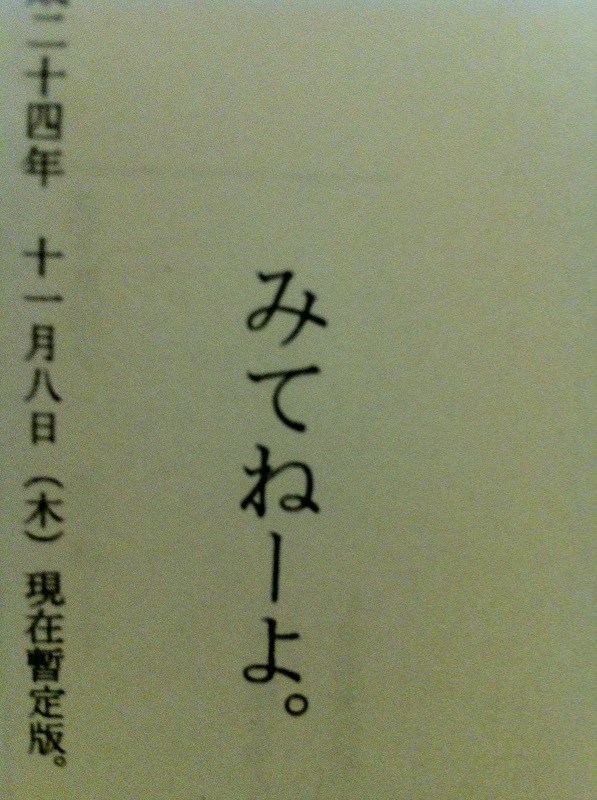 みてねーよ。
二十四年 十一月八日（木）現在暫定版。